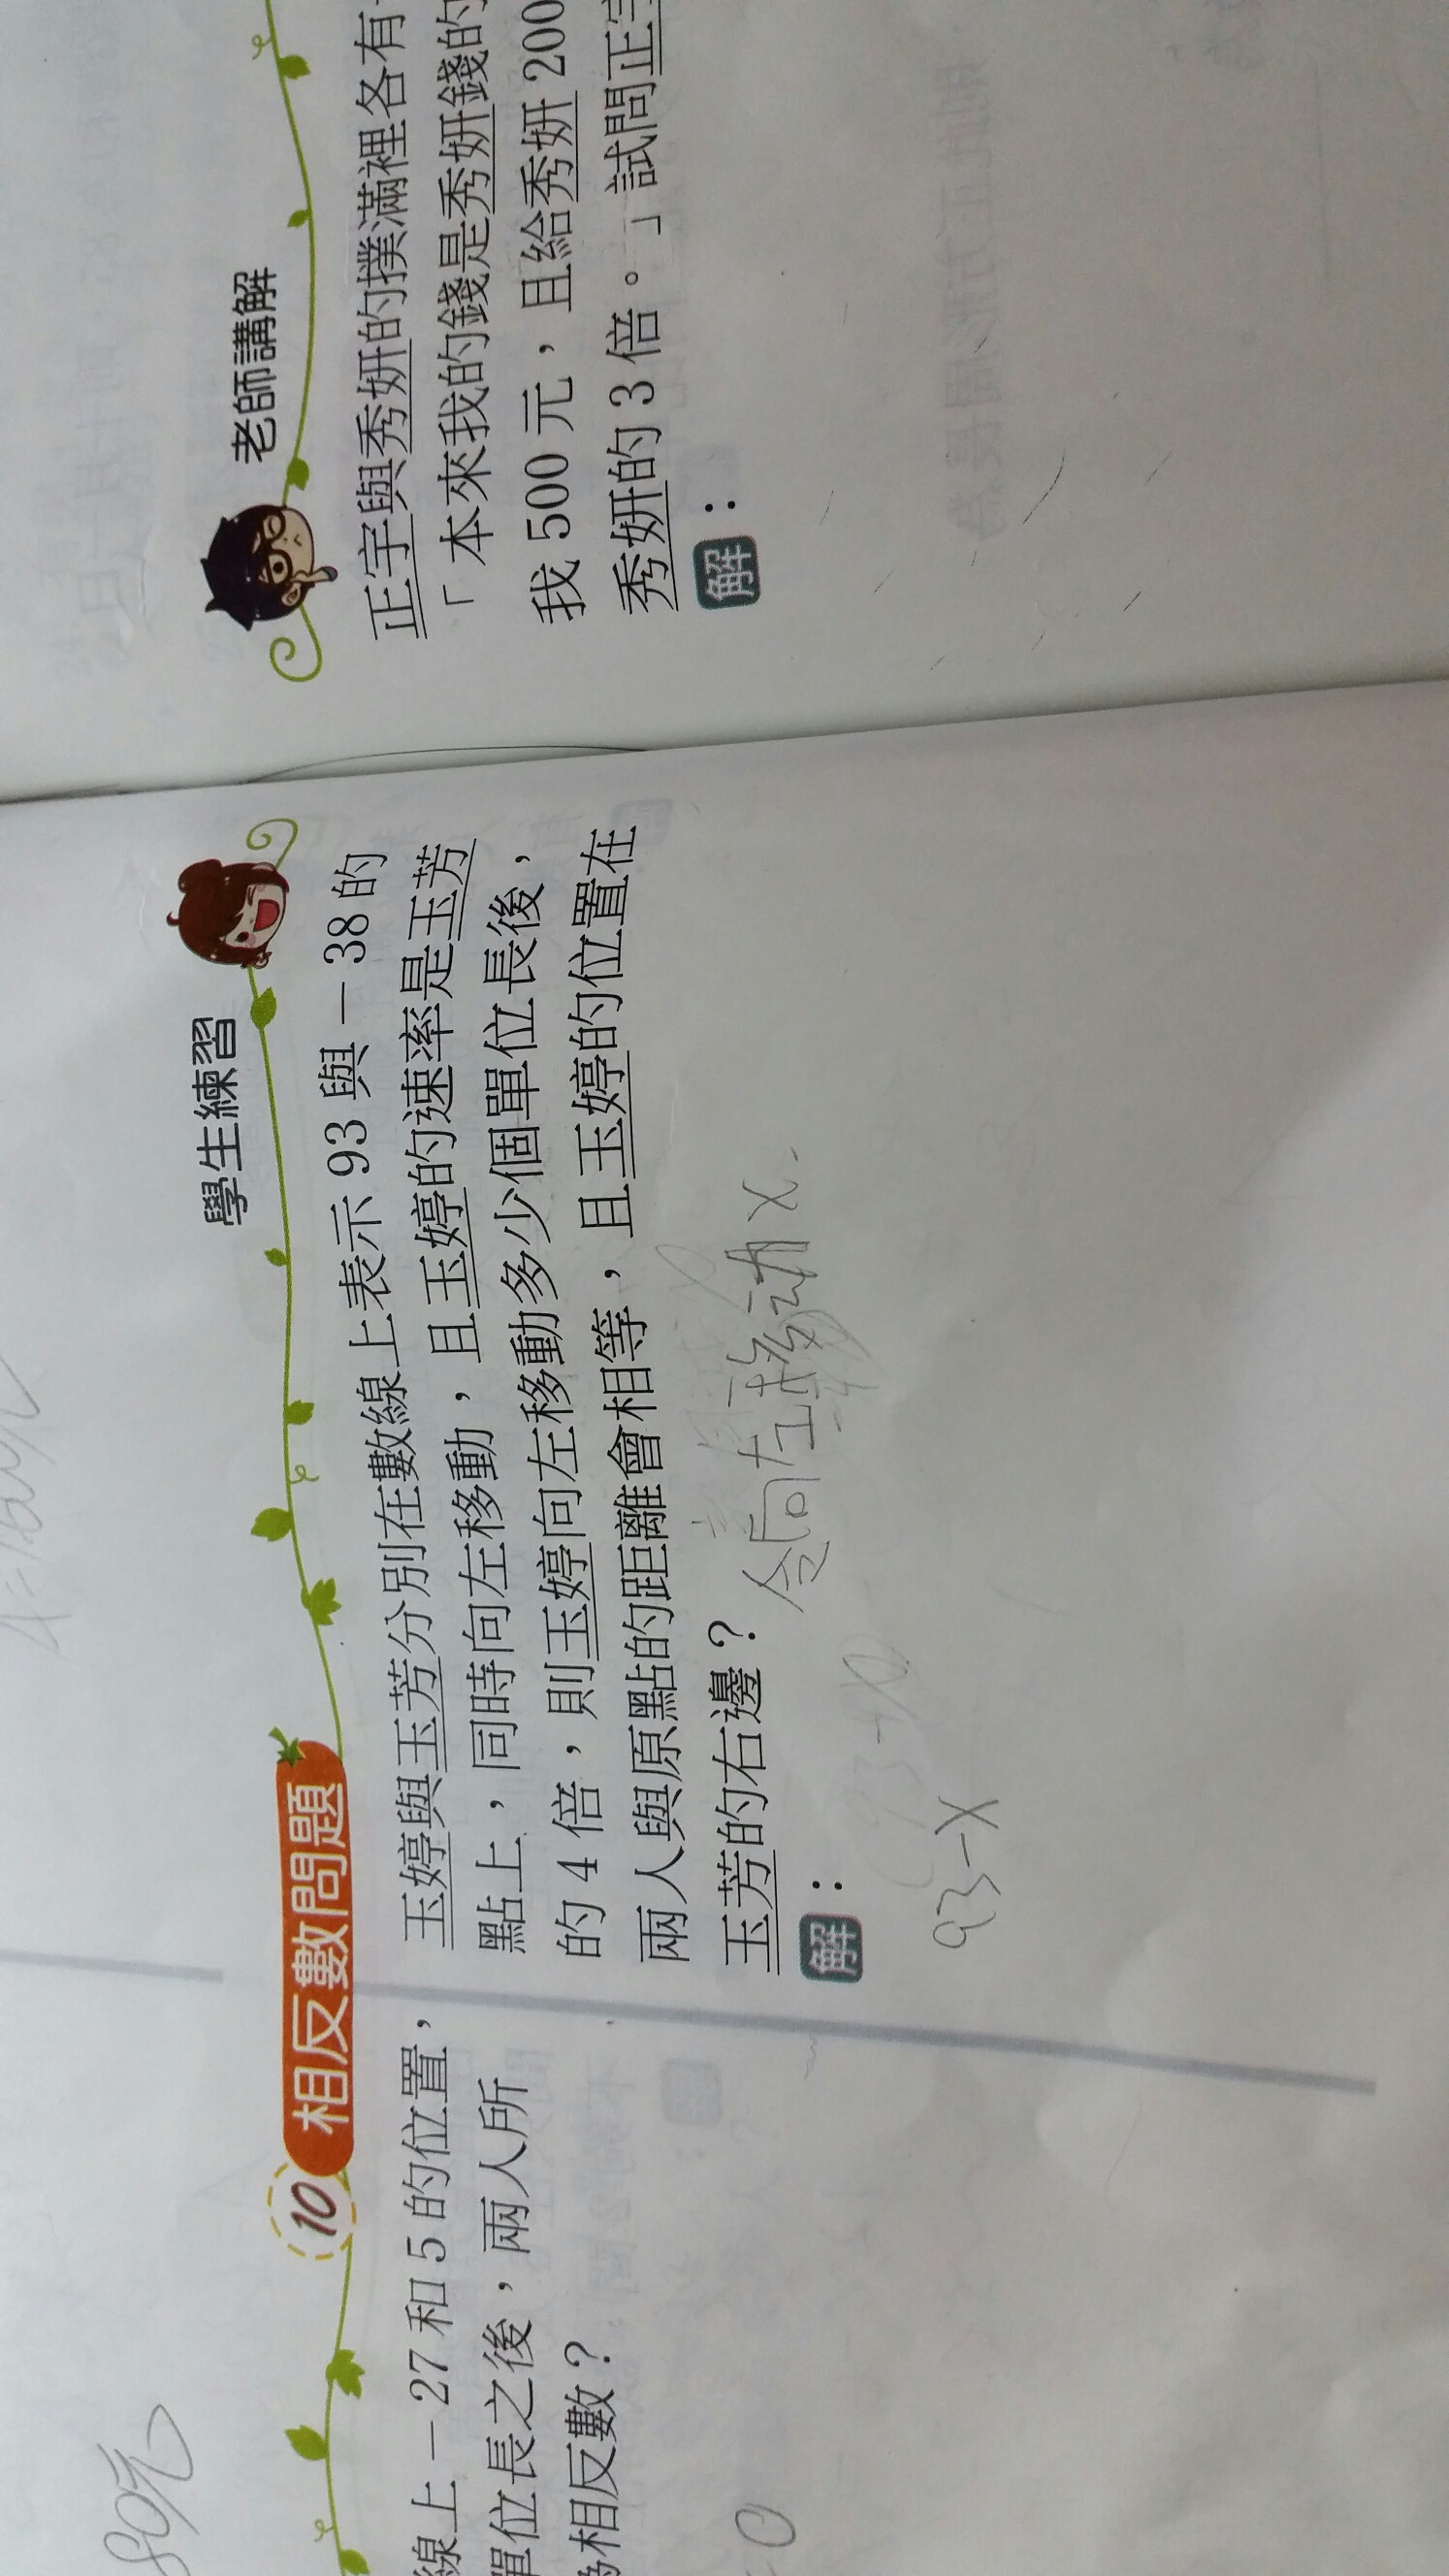 80元
10 相反數問題
線上－27 和 5 的位置，
單位長之後，兩人所
為相反數？
學生練習
玉婷與玉芳分別在數線上表示 93 與－38 的
點上，同時向左移動，且玉婷的速率是玉芳
的 4 倍，則玉婷向左移動多少個單位長後，
兩人與原點的距離會相等，且玉婷的位置在
玉芳的右邊？
令向左移动x.
解：
93-x
老師講解
正宇與秀妍的撲滿裡各有
「本來我的錢是秀妍錢的
我 500 元，且給秀妍 200
秀妍的 3 倍。」試問正宇
解：